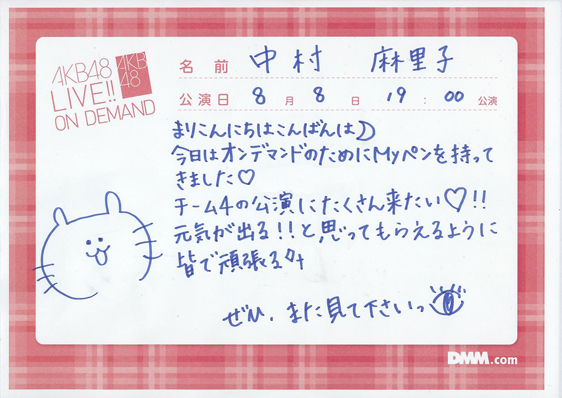 AKB48
LIVE!!
ON DEMAND
AKB
48
名前 中村 麻里子
公演日 8月8日 19:00公演
まりこんにちはこんばんは☽
今日はオンデマンドのためにMyペンを持って
きました♡
チーム4の公演にたくさん来たい♡!!
元気が出る!!と思ってもらえるように
皆で頑張る
ぜひ、また見て下さいっ
DMM.com